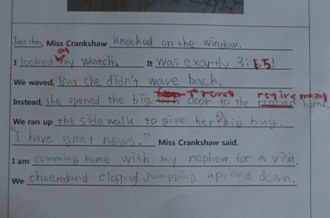 Just then, Miss Crankshaw knocked on the window.
I looked at my watch. It was exartly 3:15!
We waved, But she didn't wave back.
Instead, she opened the big front door to the retirement
We ran up the side walk to give her a big hug
"I have great news." Miss Crankshaw said.
I am comming home with my nephew for a visit.
We cheered and clapped Jumpping up and down.